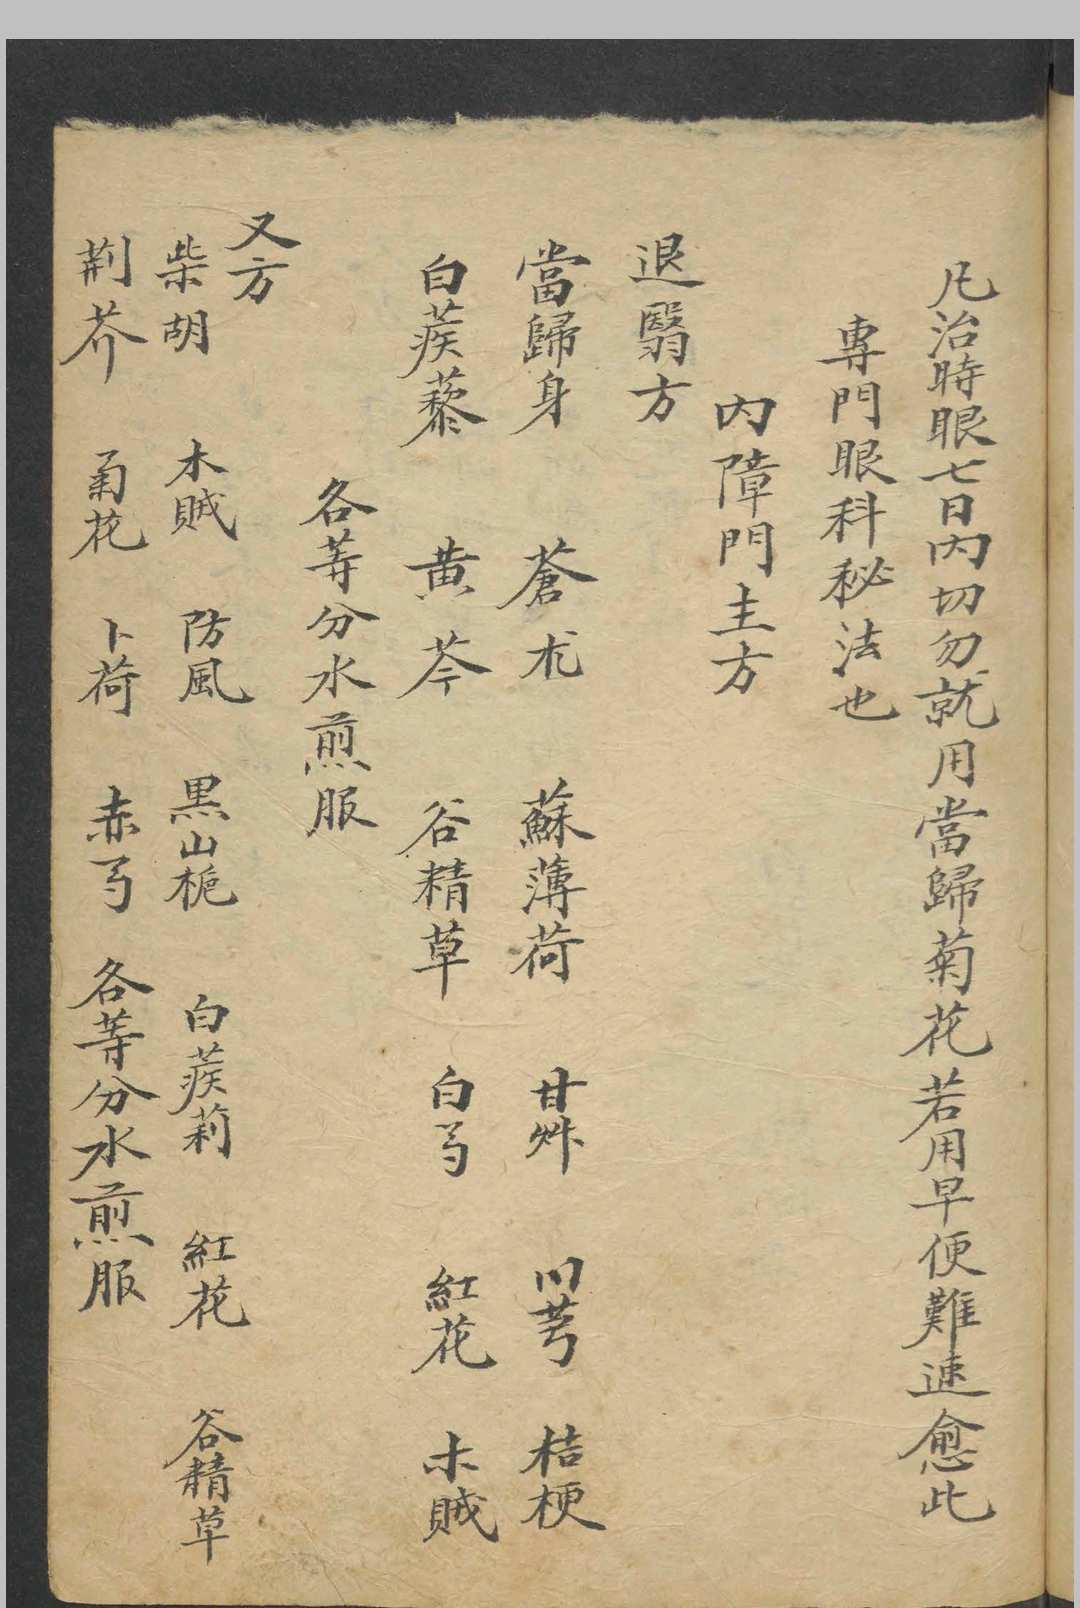 凡治時眼七日内切勿就用當歸菊花若用早便難速愈此
專門眼科秘法也
内障門主方
退翳方
當歸身 蒼朮 蘇薄荷 甘艸 川芎 桔梗
白蒺藜 黄芩 谷精草 白芍 紅花 木賊
各等分水煎服
又方
柴胡 木賊 防風 黒山梔 白蒺莉 紅花 谷精草
荆芥 菊花 卜荷 赤芍 各等分水煎服